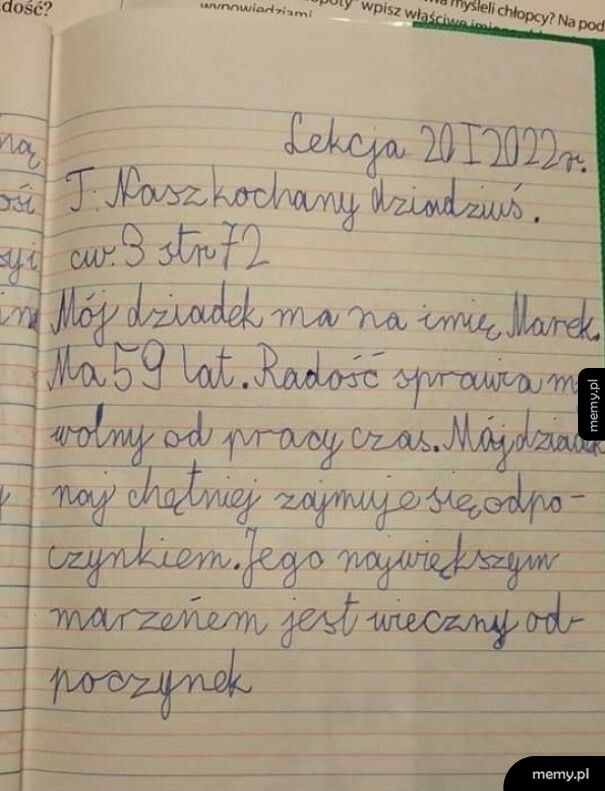 dość?
wypowiedziami
wpisz właściwe
myśleli chłopcy? Na pod
Lekcja 20 I 2022r.
T: Nasz kochany dziadziuś.
ćw. 3 str 72
Mój dziadek ma na imię Marek.
Ma 59 lat. Radość sprawia m
wolny od pracy czas. Mój dziadek
naj chętniej zajmuje się odpo-
czynkiem. Jego największym
marzeńem jest wieczny od-
poczynek
memy.pl
memy.pl